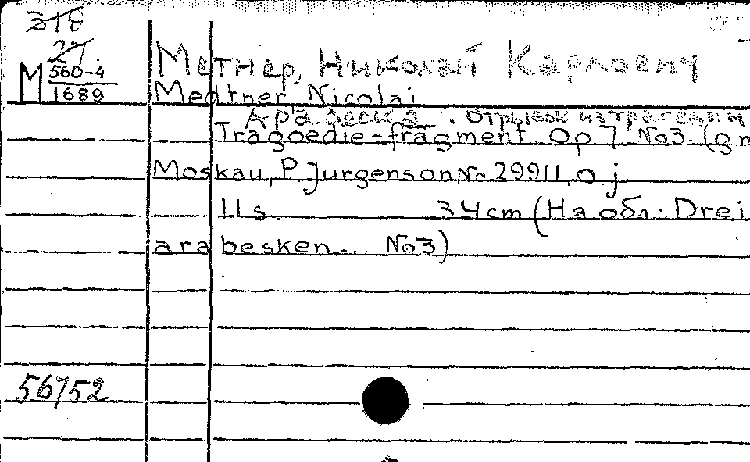 318
27
М 560-4
1689
Метнер, Николай Карлович
Medtner Nicolai
Арабеска. Отрывок из трагедии
Tragoedie-fragment Op 7 No3 (g m
Moskau, P Jurgenson No 29911, o j
11 s 34 cm (На обл. Drei
arabesken. No3)
56752